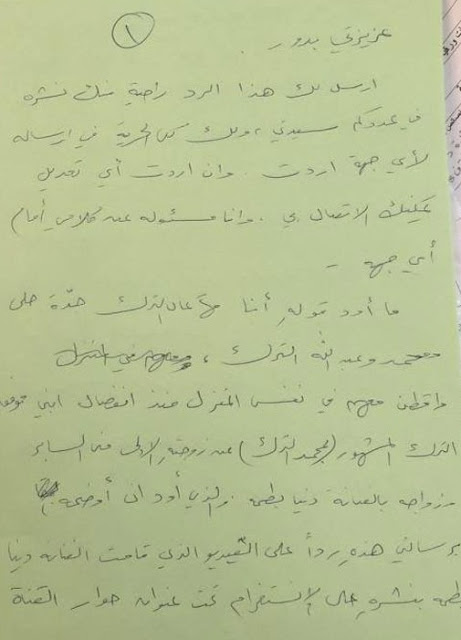 ١
عزيزتي بدور .
ارسل لك هذا الرد راجية منك نشره
في عددكم سيدتي ، ولك كل الحرية في ارساله
لأي جهة اردت . وان اردت أي تعديل
يمكنك الاتصال بي . وانا مسئوله عن كلامي أمام
أي جهه -
ما أود قوله أننا مها الترك جدّة حلى
محمد وعبد الله الترك ،
واقطن معهم في نفس المنزل منذ انفصال ابني
الترك المشهور (بمحمد الترك) عن زوجته الاولى منى السابر
وزواجه بالفنانة دنيا بطمه . والذي أود ان أوضحه
برسالتي هذه رداً على الفيديو الذي قامت الفنانه دنيا
بطمه بنشره على الإنستغرام تحت عنوان حوار القناة